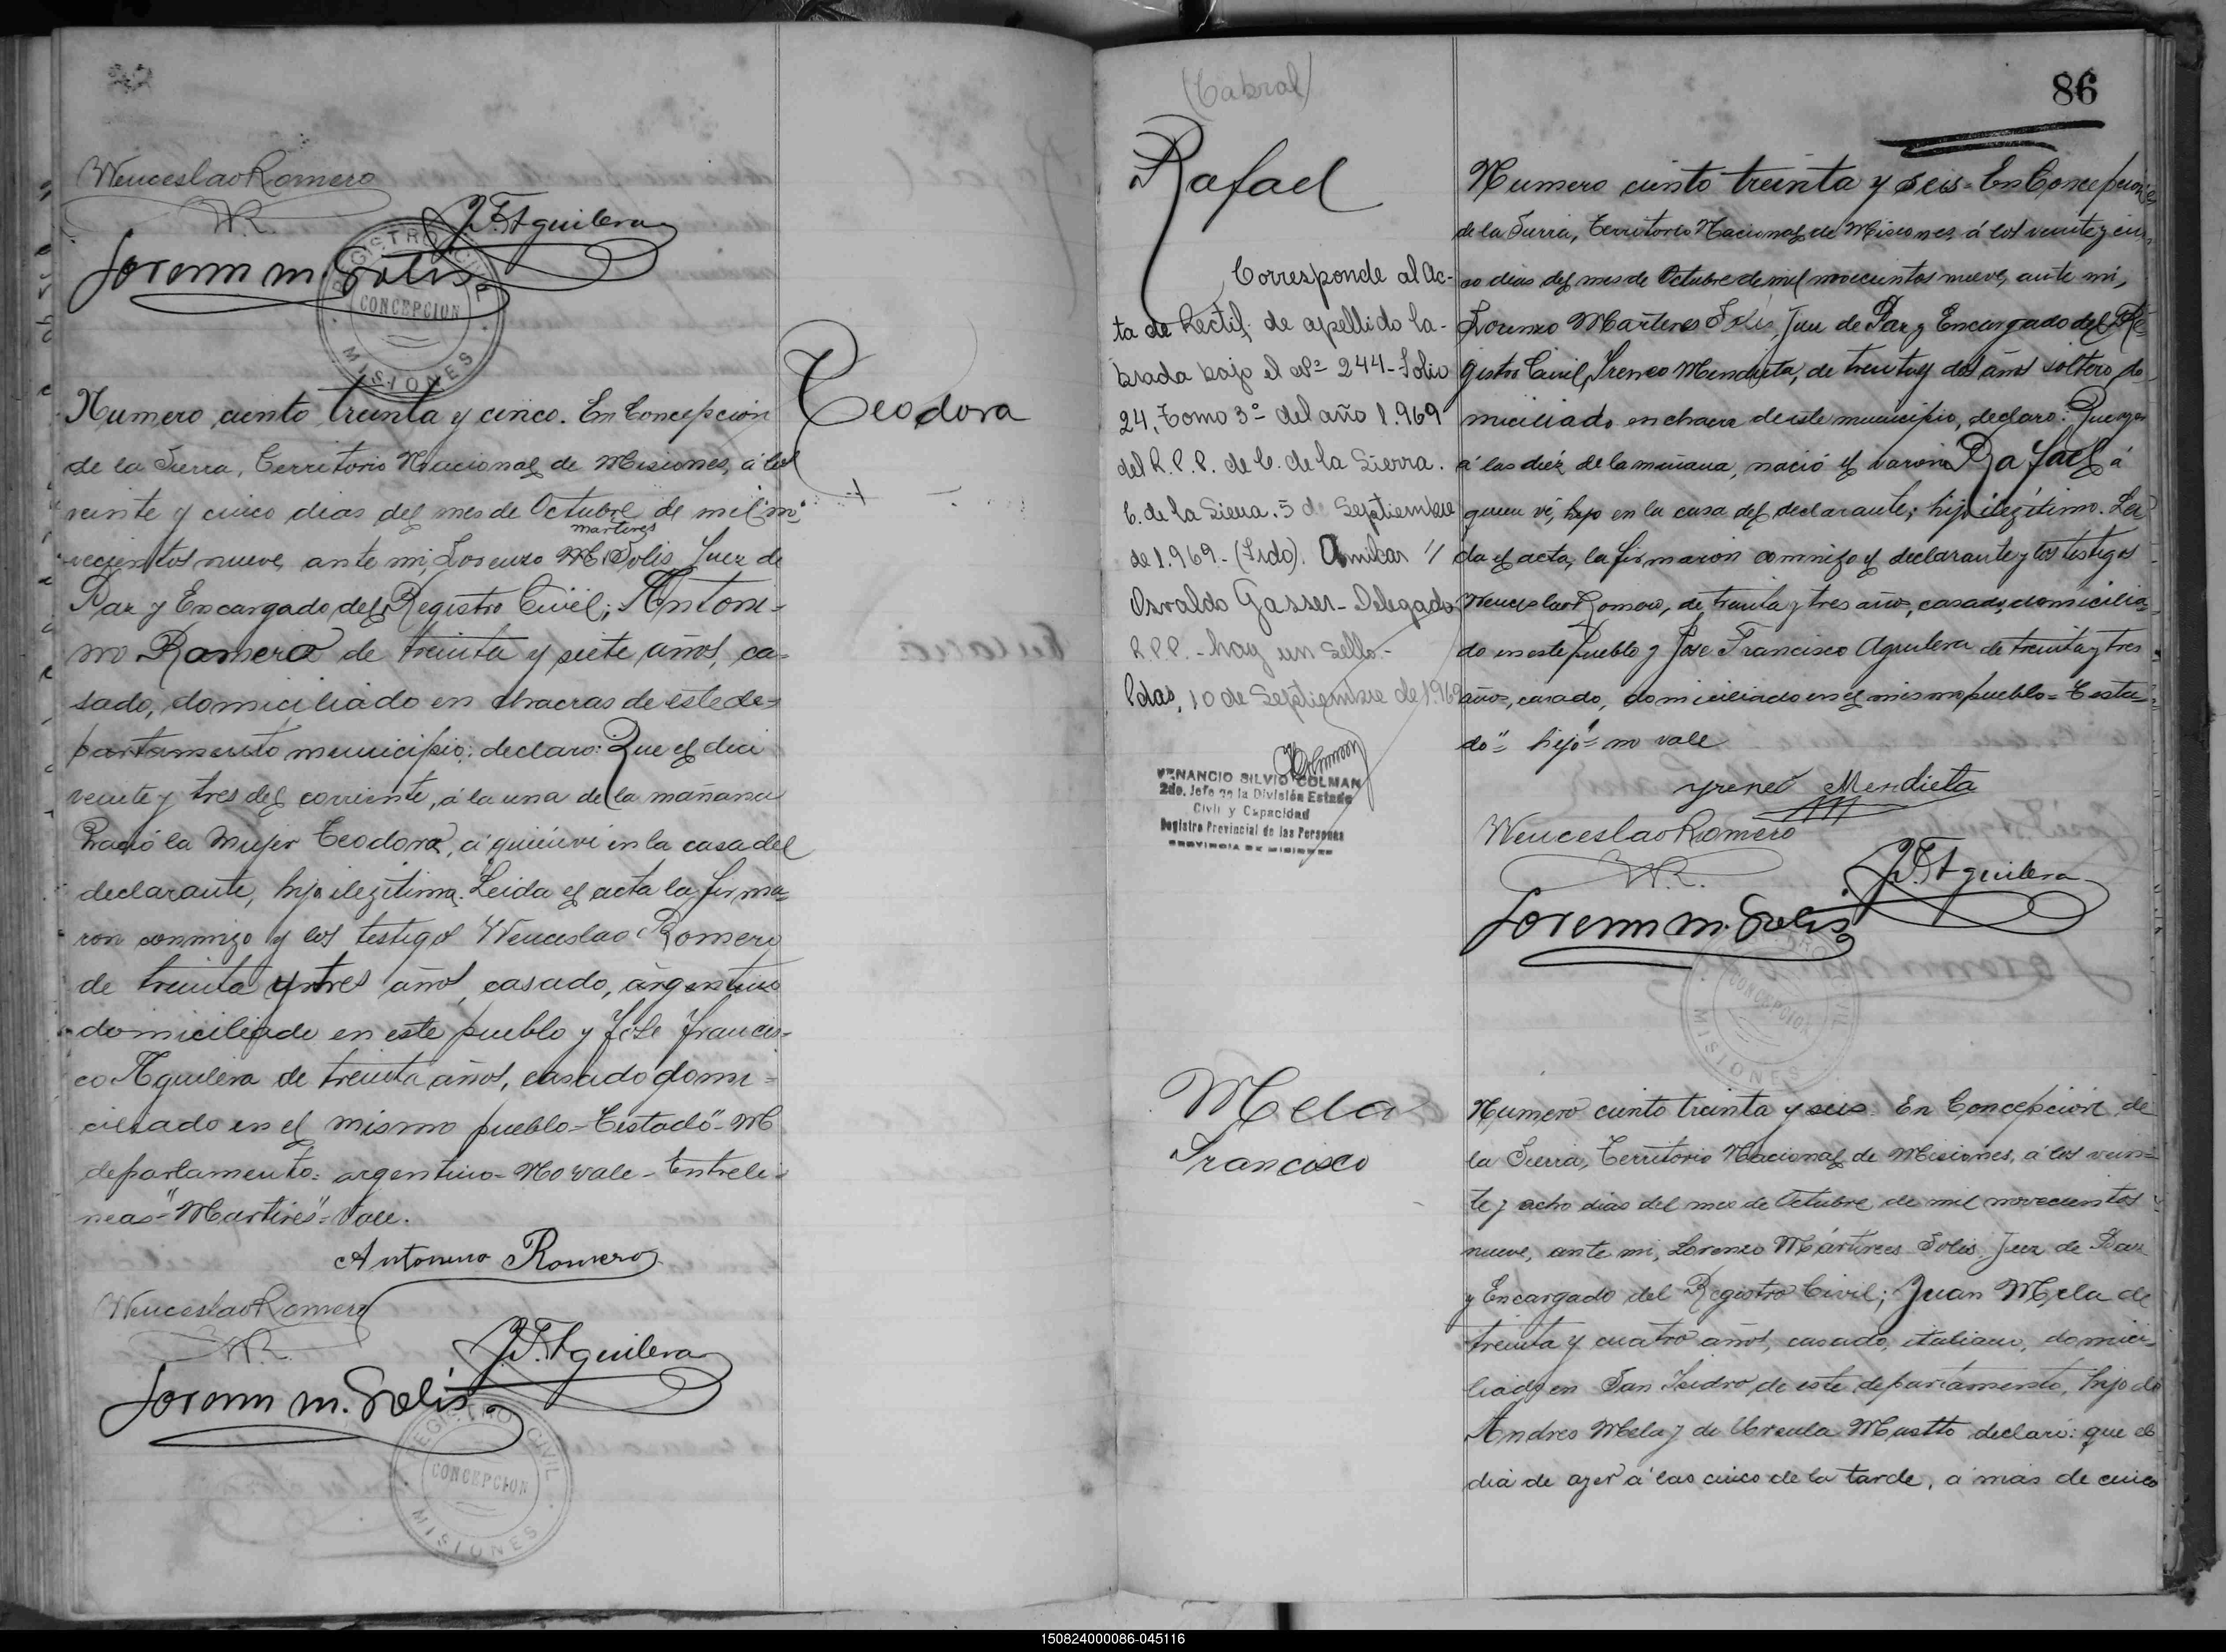 Wenceslao Romero
W.R.
J.F. Aguilera
Lorenzo M. Solis
REGISTRO CIVIL
CONCEPCION
MISIONES
Teodora
Numero ciento treinta y cinco. En Concepción
de la Sierra, Territorio Nacional de Misiones, á los
veinte y cinco dias del mes de Octubre de mil no-
martires
vecientos nueve, ante mi, Lorenzo M. Solis, Juez de
Paz y Encargado del Registro Civil; Antoni-
no Romero de treinta y siete años, ca-
sado, domiciliado en chacras de este de-
partamento municipio; declaro: Que el dia
veinte y tres del corriente, á la una de la mañana
Nació la Mujer Teodora, á quien vi en la casa del
declarante, hija ilegitima. Leida el acta la firma-
ron conmigo y los testigos Wenceslao Romero
de treinta y tres años, casado, argentino
domiciliado en este pueblo y José Francis-
co Aguilera de treinta años, casado domi-
ciliado en el mismo pueblo=Testado"-M
departamento: argentino-No vale-Entreli-
neas-"Martires"-Vale.
Antonino Romero
Wenceslao Romero
W.R.
J.F. Aguilera
Lorenzo M. Solis
REGISTRO CIVIL
CONCEPCION
MISIONES
86
(Cabral)
Rafael
Corresponde al Ac-
ta de Rectif. de apellido la-
brada bajo el nº 244-Folio
24, Tomo 3º del año 1.969
del R.P.P. de C. de la Sierra.
C. de la Sierra. 5 de Septiembre
de 1.969.- (Fdo). Amilcar
Osvaldo Gasser-Delegado
R.P.P.-hay un sello.-
Pdas, 10 de Septiembre de 1.969
VENANCIO SILVIO COLMAN
2do. Jefe de la División Estado
Civil y Capacidad
Registro Provincial de las Personas
PROVINCIA DE MISIONES
Numero ciento treinta y seis= En Concepcion
de la Sierra, Territorio Nacional de Misiones, á los veinte y cin-
co dias del mes de Octubre de mil novecientos nueve, ante mi,
Lorenzo Martires Solis, Juez de Paz y Encargado del Re-
gistro Civil, Ireneo Mendieta, de treinta y dos años soltero, do-
miciliado en chacra de este municipio, declaro: Que ayer
á las diéz de la mañana, nació el varon Rafael á
quien vi, hijo en la casa del declarante; hijo ilegítimo. Lei-
da el acta, la firmaron conmigo el declarante y los testigos
Wenceslao Romero, de treinta y tres años, casado, domicilia-
do en este pueblo y José Francisco Aguilera de treinta y tres
años, casado, domiciliado en el mismo pueblo= Testa-
do" hijo" no vale
Yreneo Mendieta
Wenceslao Romero
W.R.
J.F. Aguilera
Lorenzo M. Solis
REGISTRO CIVIL
CONCEPCION
MISIONES
Mela
Francisco
Numero ciento treinta y seis. En Concepción de
la Sierra, Territorio Nacional de Misiones, á los vein-
te y ocho dias del mes de Octubre de mil novecientos
nueve, ante mi, Lorenzo Mártires Solis, Juez de Paz
y Encargado del Registro Civil; Juan Mela de
treinta y cuatro años, casado, italiano, domici-
liado en San Isidro, de este departamento, hijo de
Andres Mela y de Ursula Mustto declaró: que el
dia de ayer á las cinco de la tarde, á mas de cinco
150824000086-045116